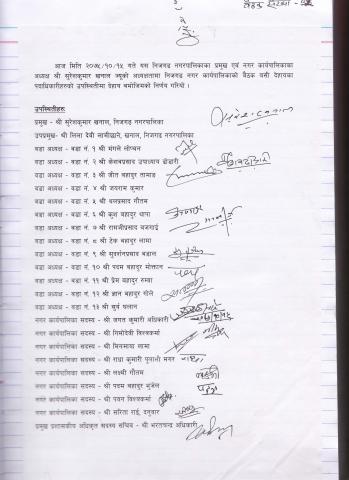 आज मिति २०७५/१०/१५ गते यस निजगढ नगरपालिकाका प्रमुख एवं नगर कार्यपालिकाका
अध्यक्ष श्री सुरेशकुमार खनाल ज्यूको अध्यक्षतामा निजगढ नगर कार्यपालिकाको बैठक बसी देहायका
पदाधिकारीहरुको उपस्थितीमा देहाय बमोजिमको निर्णय गरियो ।
उपस्थितीहरु
प्रमुख - श्री सुरेशकुमार खनाल, निजगढ नगरपालिका
उपप्रमुख- श्री लिला देवी लामीछाने, निजगढ नगरपालिका
वडा अध्यक्ष - वडा नं. १ श्री मंगले लोप्चन
वडा अध्यक्ष - वडा नं. २ श्री केशवप्रसाद उपाध्याय ढोडारी
वडा अध्यक्ष - वडा नं. ३ श्री जीत बहादुर तामाङ
वडा अध्यक्ष - वडा नं. ४ श्री जयराम कुमार
वडा अध्यक्ष - वडा नं. ५ श्री बलप्रसाद गौतम
वडा अध्यक्ष - वडा नं. ६ श्री कुल बहादुर थापा
वडा अध्यक्ष - वडा नं. ७ श्री रामजीप्रसाद बजगाई
वडा अध्यक्ष - वडा नं. ८ श्री टेक बहादुर लामा
वडा अध्यक्ष - वडा नं. ९ श्री सुदर्शनप्रसाद बडाल
वडा अध्यक्ष - वडा नं. १० श्री पदम बहादुर मोक्तान
वडा अध्यक्ष - वडा नं. ११ श्री प्रेम बहादुर रुम्बा
वडा अध्यक्ष - वडा नं. १२ श्री ज्ञान बहादुर गोले
वडा अध्यक्ष - वडा नं. १३ श्री सुर्य घलान
नगर कार्यपालिका सदस्य - श्री जगत कुमारी अधिकारी
नगर कार्यपालिका सदस्य - श्री गिमोदेवी विश्वकर्मा
नगर कार्यपालिका सदस्य - श्री मिनमाया लामा
नगर कार्यपालिका सदस्य - श्री राधा कुमारी पुलामी मगर
नगर कार्यपालिका सदस्य - श्री लक्ष्मी गौतम
नगर कार्यपालिका सदस्य - श्री पदम बहादुर भुजेल
नगर कार्यपालिका सदस्य - श्री पवन विश्वकर्मा
नगर कार्यपालिका सदस्य - श्री सरिता राई, दनुवार
प्रमुख प्रशासकीय अधिकृत सदस्य सचिव - श्री भरतचन्द्र अधिकारी